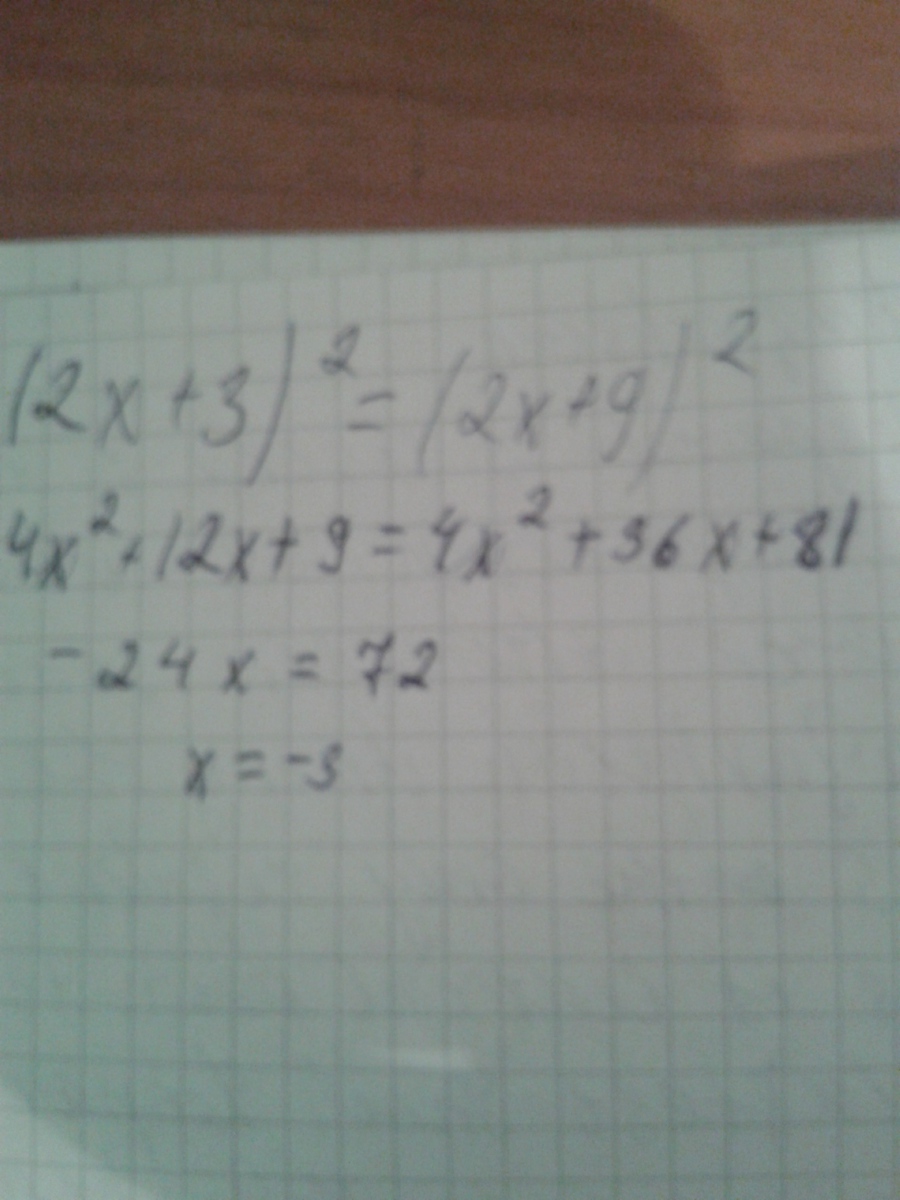 (2x+3)² = (2x+9)²
4x²+12x+9=4x²+36x+81
-24x=72
x=-3